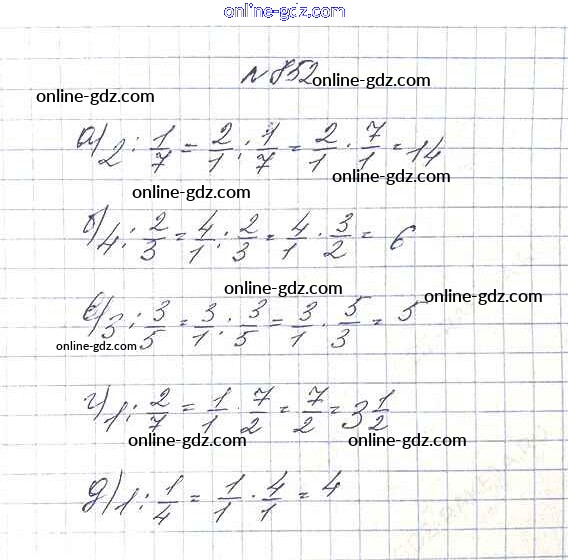 online-gdz.com
№ 852
online-gdz.com
online-gdz.com
а) 2 : 1/7 = 2/1 : 1/7 = 2/1 · 7/1 = 14
online-gdz.com
online-gdz.com
б) 4 : 2/3 = 4/1 : 2/3 = 4/1 · 3/2 = 6
online-gdz.com
online-gdz.com
в) 3 : 3/5 = 3/1 : 3/5 = 3/1 · 5/3 = 5
online-gdz.com
г) 1 : 2/7 = 1/1 · 7/2 = 7/2 = 3 1/2
online-gdz.com
online-gdz.com
д) 1 : 1/4 = 1/1 · 4/1 = 4
online-gdz.com